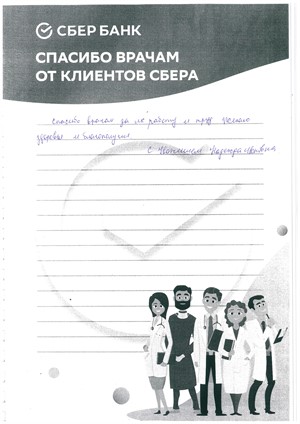 СБЕР БАНК
СПАСИБО ВРАЧАМ
ОТ КЛИЕНТОВ СБЕРА
Спасибо врачам за их работу и труд Желаю
здоровья и благополучия
С